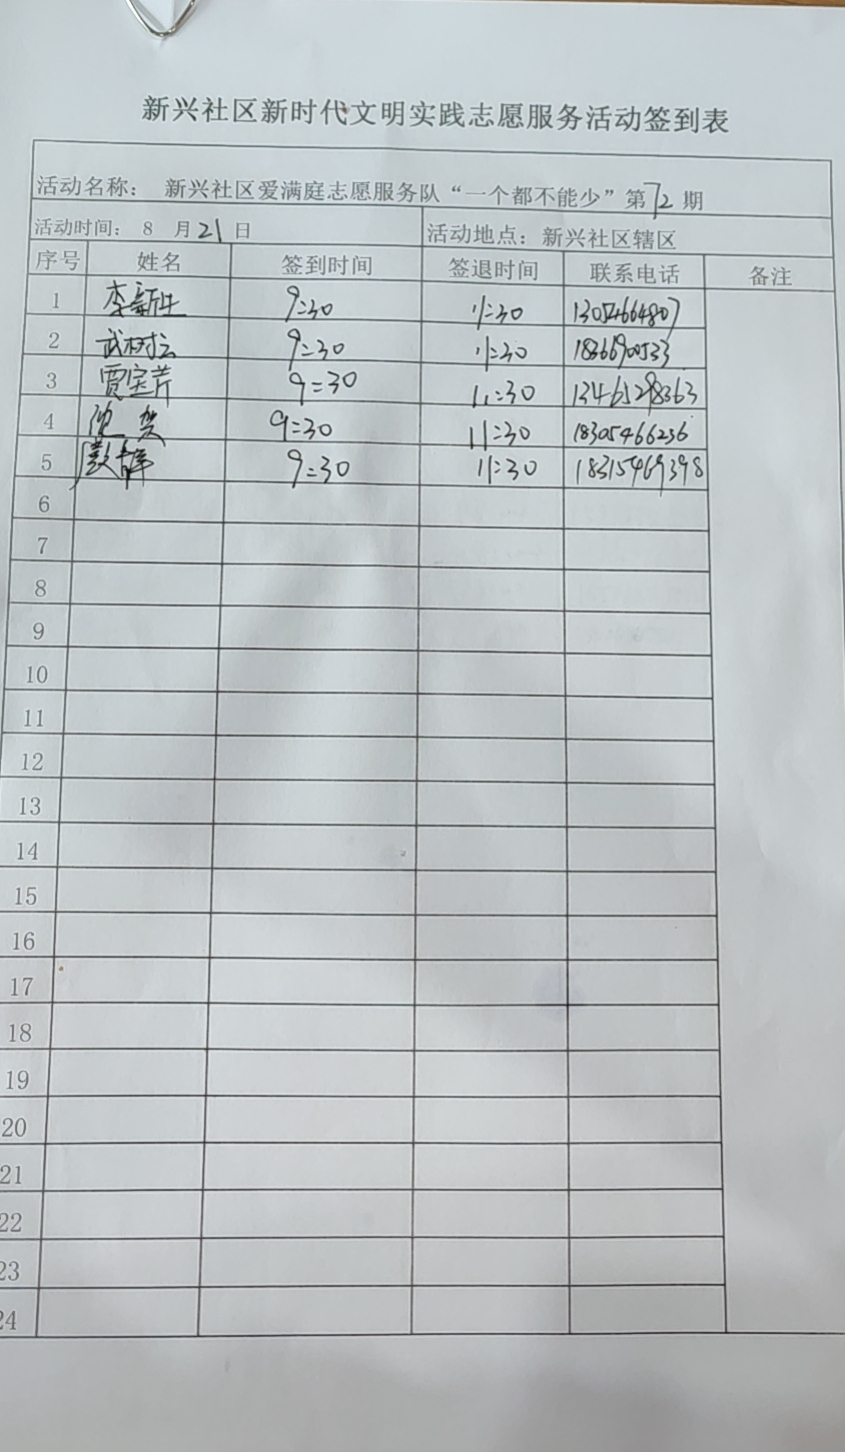 新兴社区新时代文明实践志愿服务活动签到表
活动名称： 新兴社区爱满庭志愿服务队“一个都不能少”第72期
活动时间： 8 月21日 活动地点：新兴社区辖区
序号 姓名 签到时间 签退时间 联系电话 备注
1 李新生 9:30 11:30 13054664807
2 武树 9:30 11:30
3 贾宝芹 9=30 11:30 13465298363
4 贺 9:30 11:30 18305466236
5 9:30 11:30 18315469398
6
7
8
9
10
11
12
13
14
15
16
17
18
19
20
21
22
23
24